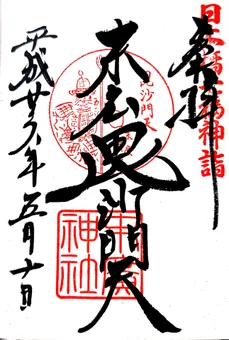 日本橋七福神詣
奉拝
毘沙門天
末広毘沙門天
末廣神社
平成廿年五月十日